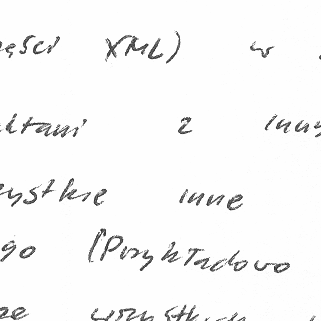 ęści XML) w
ktami z inny
zystkie inne
go (Przykładowo
ze wszystkich